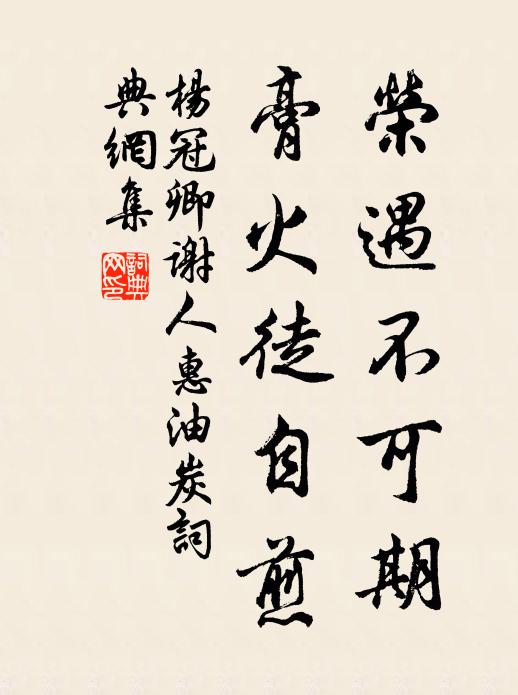 榮遇不可期
膏火徒自煎
楊冠卿謝人惠油炭詞
典網集
詞典網印